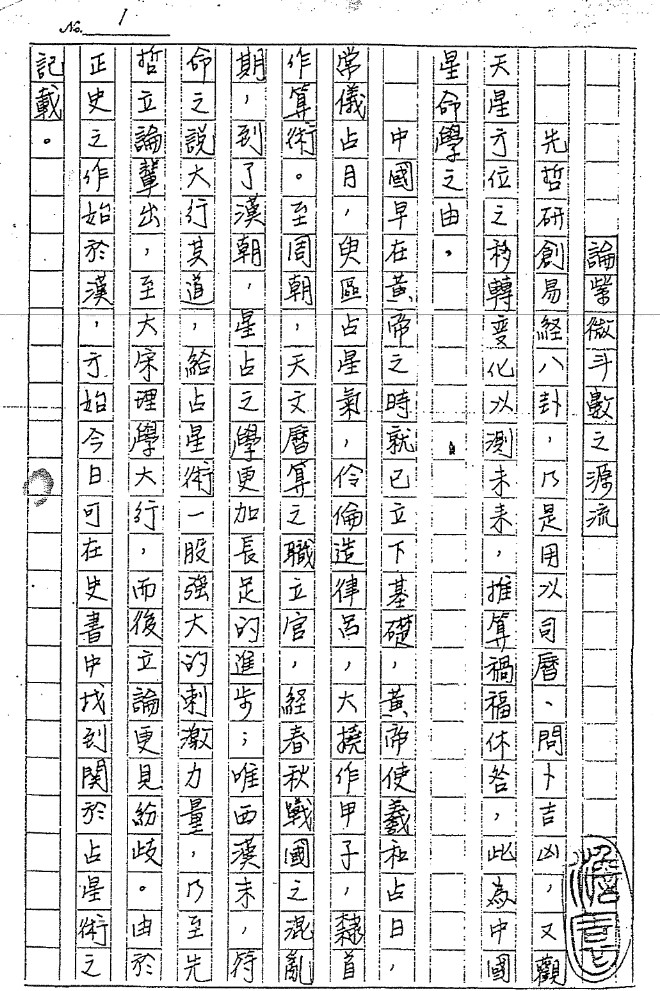 No. 1
論紫微斗數之源流
先哲研創易経八卦，乃是用以司曆、問卜吉凶，又觀
天星方位之移轉変化以測未来，推算禍福休咎，此為中國
星命學之由。
中國早在黃帝之時就已立下基礎，黃帝使羲和占日，
常儀占月，臾區占星氣，伶倫造律呂，大撓作甲子，隸首
作算術。至周朝，天文曆算之職立官，経春秋戰國之混亂
期，到了漢朝，星占之學更加長足的進步；唯西漢末，符
命之説大行其道，給占星術一股强大的刺激力量，乃至先
哲立論輩出，至大宋理學大行，而後立論更見紛歧。由於
正史之作始於漢，方始今日可在史書中找到関於占星術之
記載。